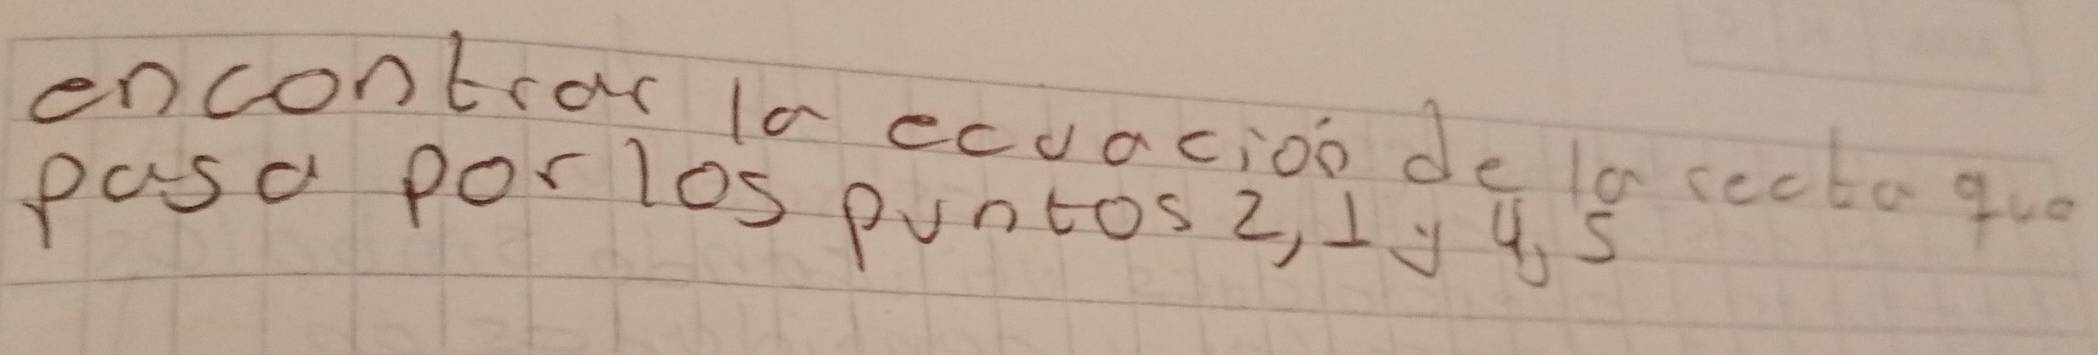 encontrar la ecuación de la recta que
pasa por los puntos 2,1 y 4,5